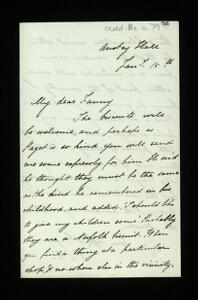 Add Ms a 79
Anstey Hall
Jan. 18th
My dear Fanny
The biscuits will
be welcome, and perhaps as
Paget is so kind you will send
me some expressly for him. He said
he thought they must be the same
as the kind he remembered in his
childhood, and added, I should like
to give my children some! Probably
they are a Norfolk biscuit. Often
you find a thing at a particular
shop, & no where else in the vicinity.